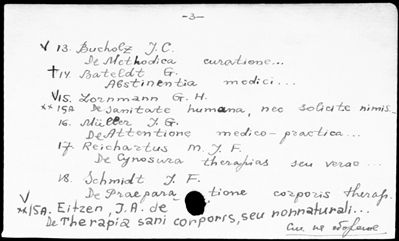 -3-
V 13. Bucholz J.C.
De Methodica curatione...
†14. Bateldt G.
Abstinentia medici...
V15. Zornmann G.H.
xx 15A De sanitate humana, nec solicite nimis...
16. Müller J.G.
De Attentione medico-practica...
17. Reichartus M.J.F.
De Cynosura therapias seu verae...
18. Schmidt J.F.
De Praepara tione corporis therap.
V
xx/15A. Eitzen, J.A. de
De Therapia sani corporis, seu nonnaturali...
См. на обороте